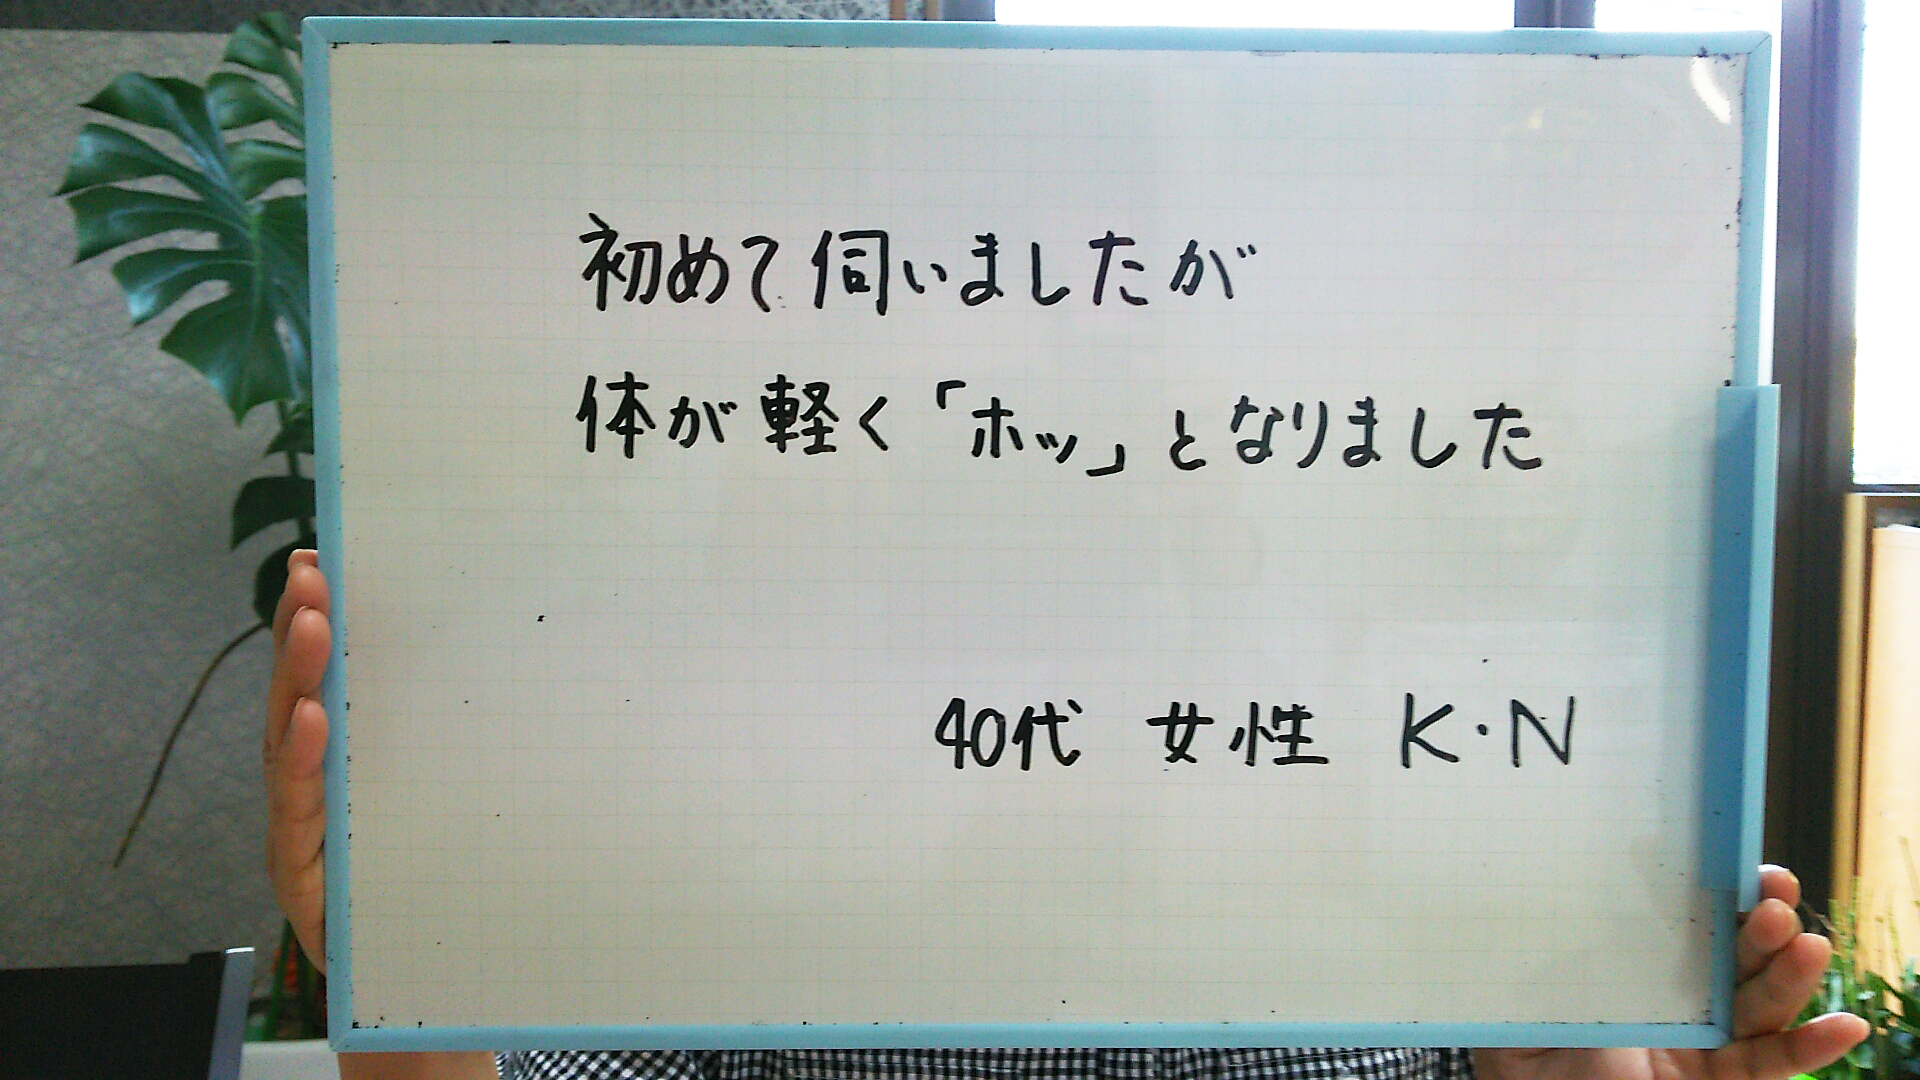 初めて伺いましたが
体が軽く「ホッ」となりました
40代 女性 K・N